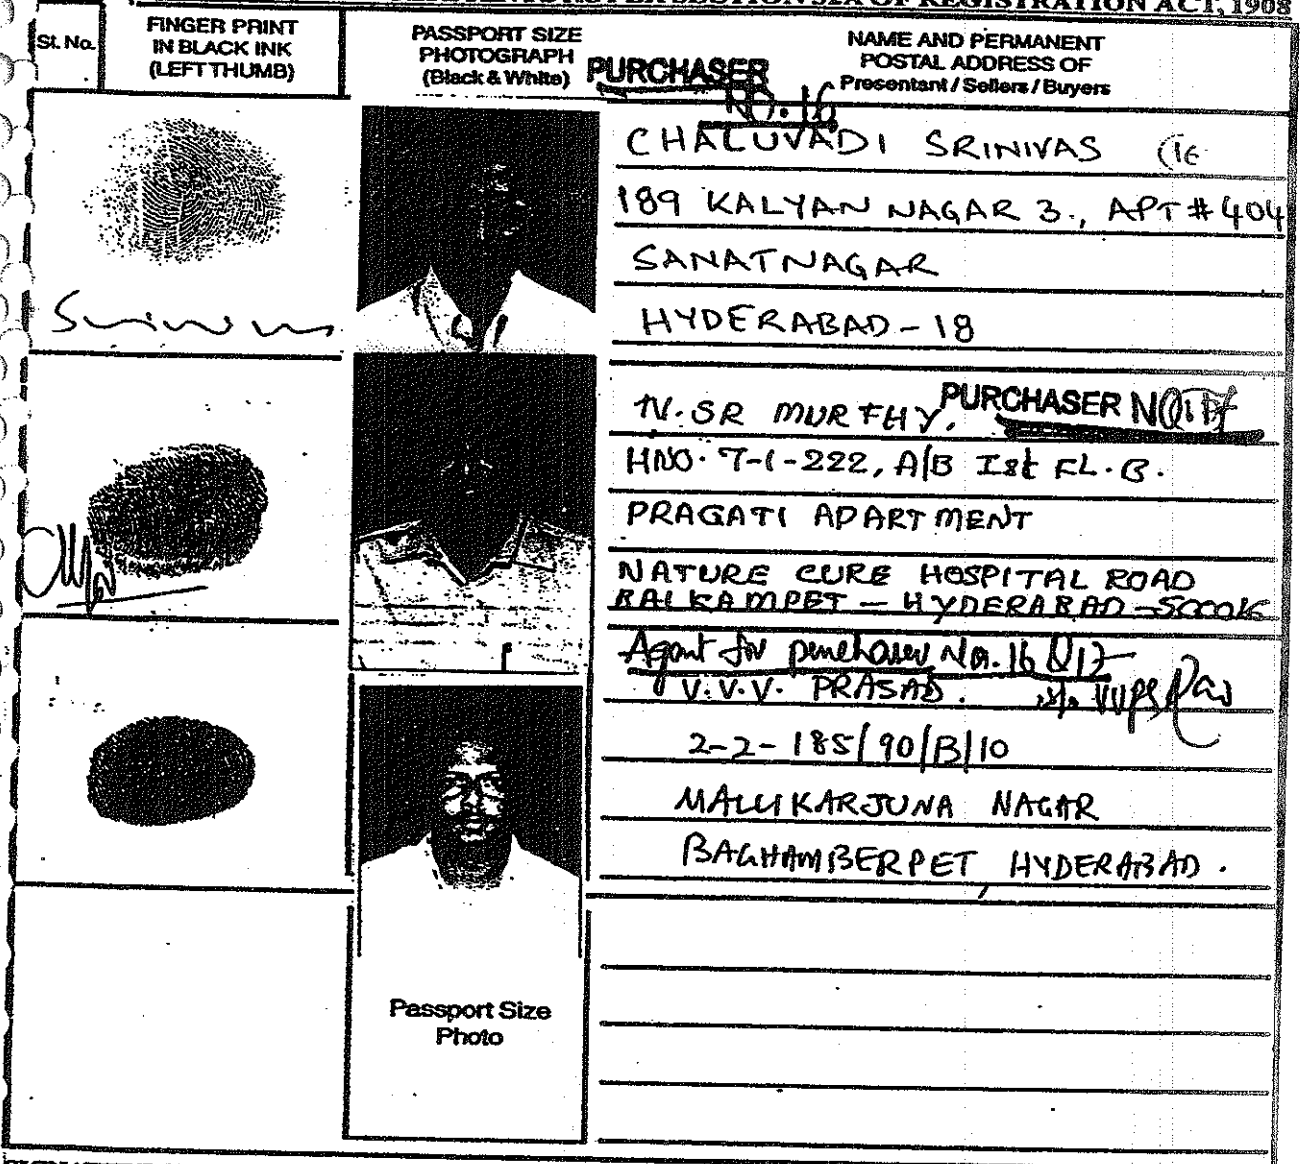 SECTION 32A OF REGISTRATION ACT, 1908
Sl. No.
FINGER PRINT
IN BLACK INK
(LEFT THUMB)
PASSPORT SIZE
PHOTOGRAPH
(Black & White)
NAME AND PERMANENT
POSTAL ADDRESS OF
Presentant / Sellers / Buyers
PURCHASER
NO. 16
CHALUVADI SRINIVAS
189 KALYAN NAGAR 3., APT # 404
SANATNAGAR
HYDERABAD - 18
PURCHASER NO
N. SR MURTHY.
HNO. 7-1-222, A/B Ist FL. B.
PRAGATI APARTMENT
NATURE CURE HOSPITAL ROAD
BALKAMPET - HYDERABAD - 500016
Agent for purchaser No. 16 & 17
V.V.V. PRASAD. s/o
2-2-185/90/B/10
MALLIKARJUNA NAGAR
BAGHAMBERPET, HYDERABAD.
Passport Size
Photo